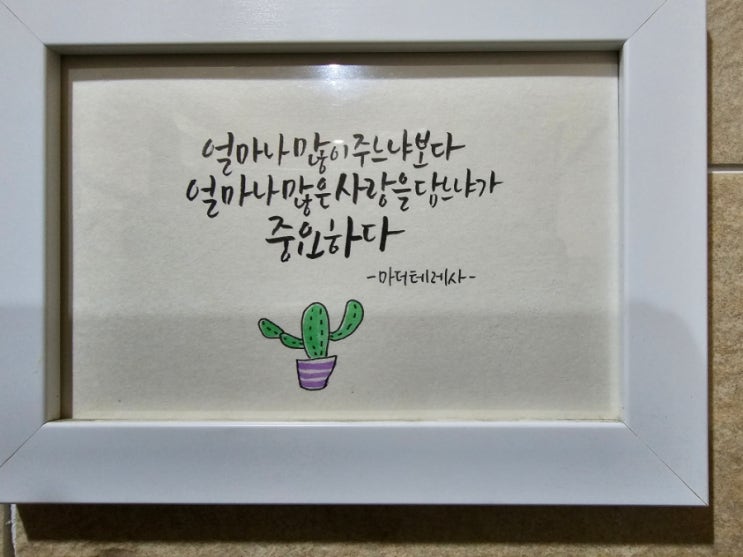 얼마나 많이 주느냐보다
얼마나 많은 사랑을 담느냐가
중요하다
-마더테레사-